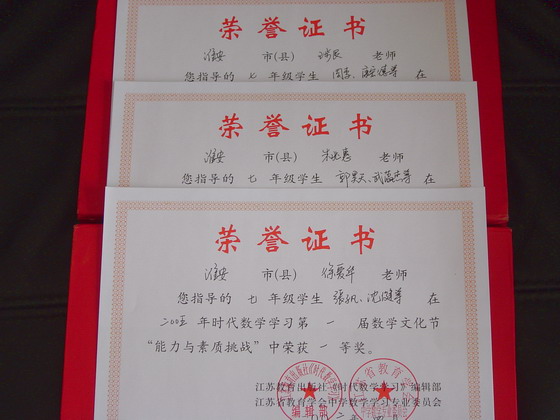 荣誉证书
淮安 市(县) 老师
您指导的 七 年级学生 周 等 在
荣誉证书
淮安 市(县) 朱 老师
您指导的 七 年级学生 郭昊天、武 等 在
荣誉证书
淮安 市(县) 徐爱华 老师
您指导的 七 年级学生 张帆、沈健等 在
二00五 年时代数学学习第 一 届数学文化节
“能力与素质挑战”中荣获 一 等奖。
江苏教育出版社《时代数学学习》编辑部
江苏省教育学会中学数学学习专业委员会
编辑部
二